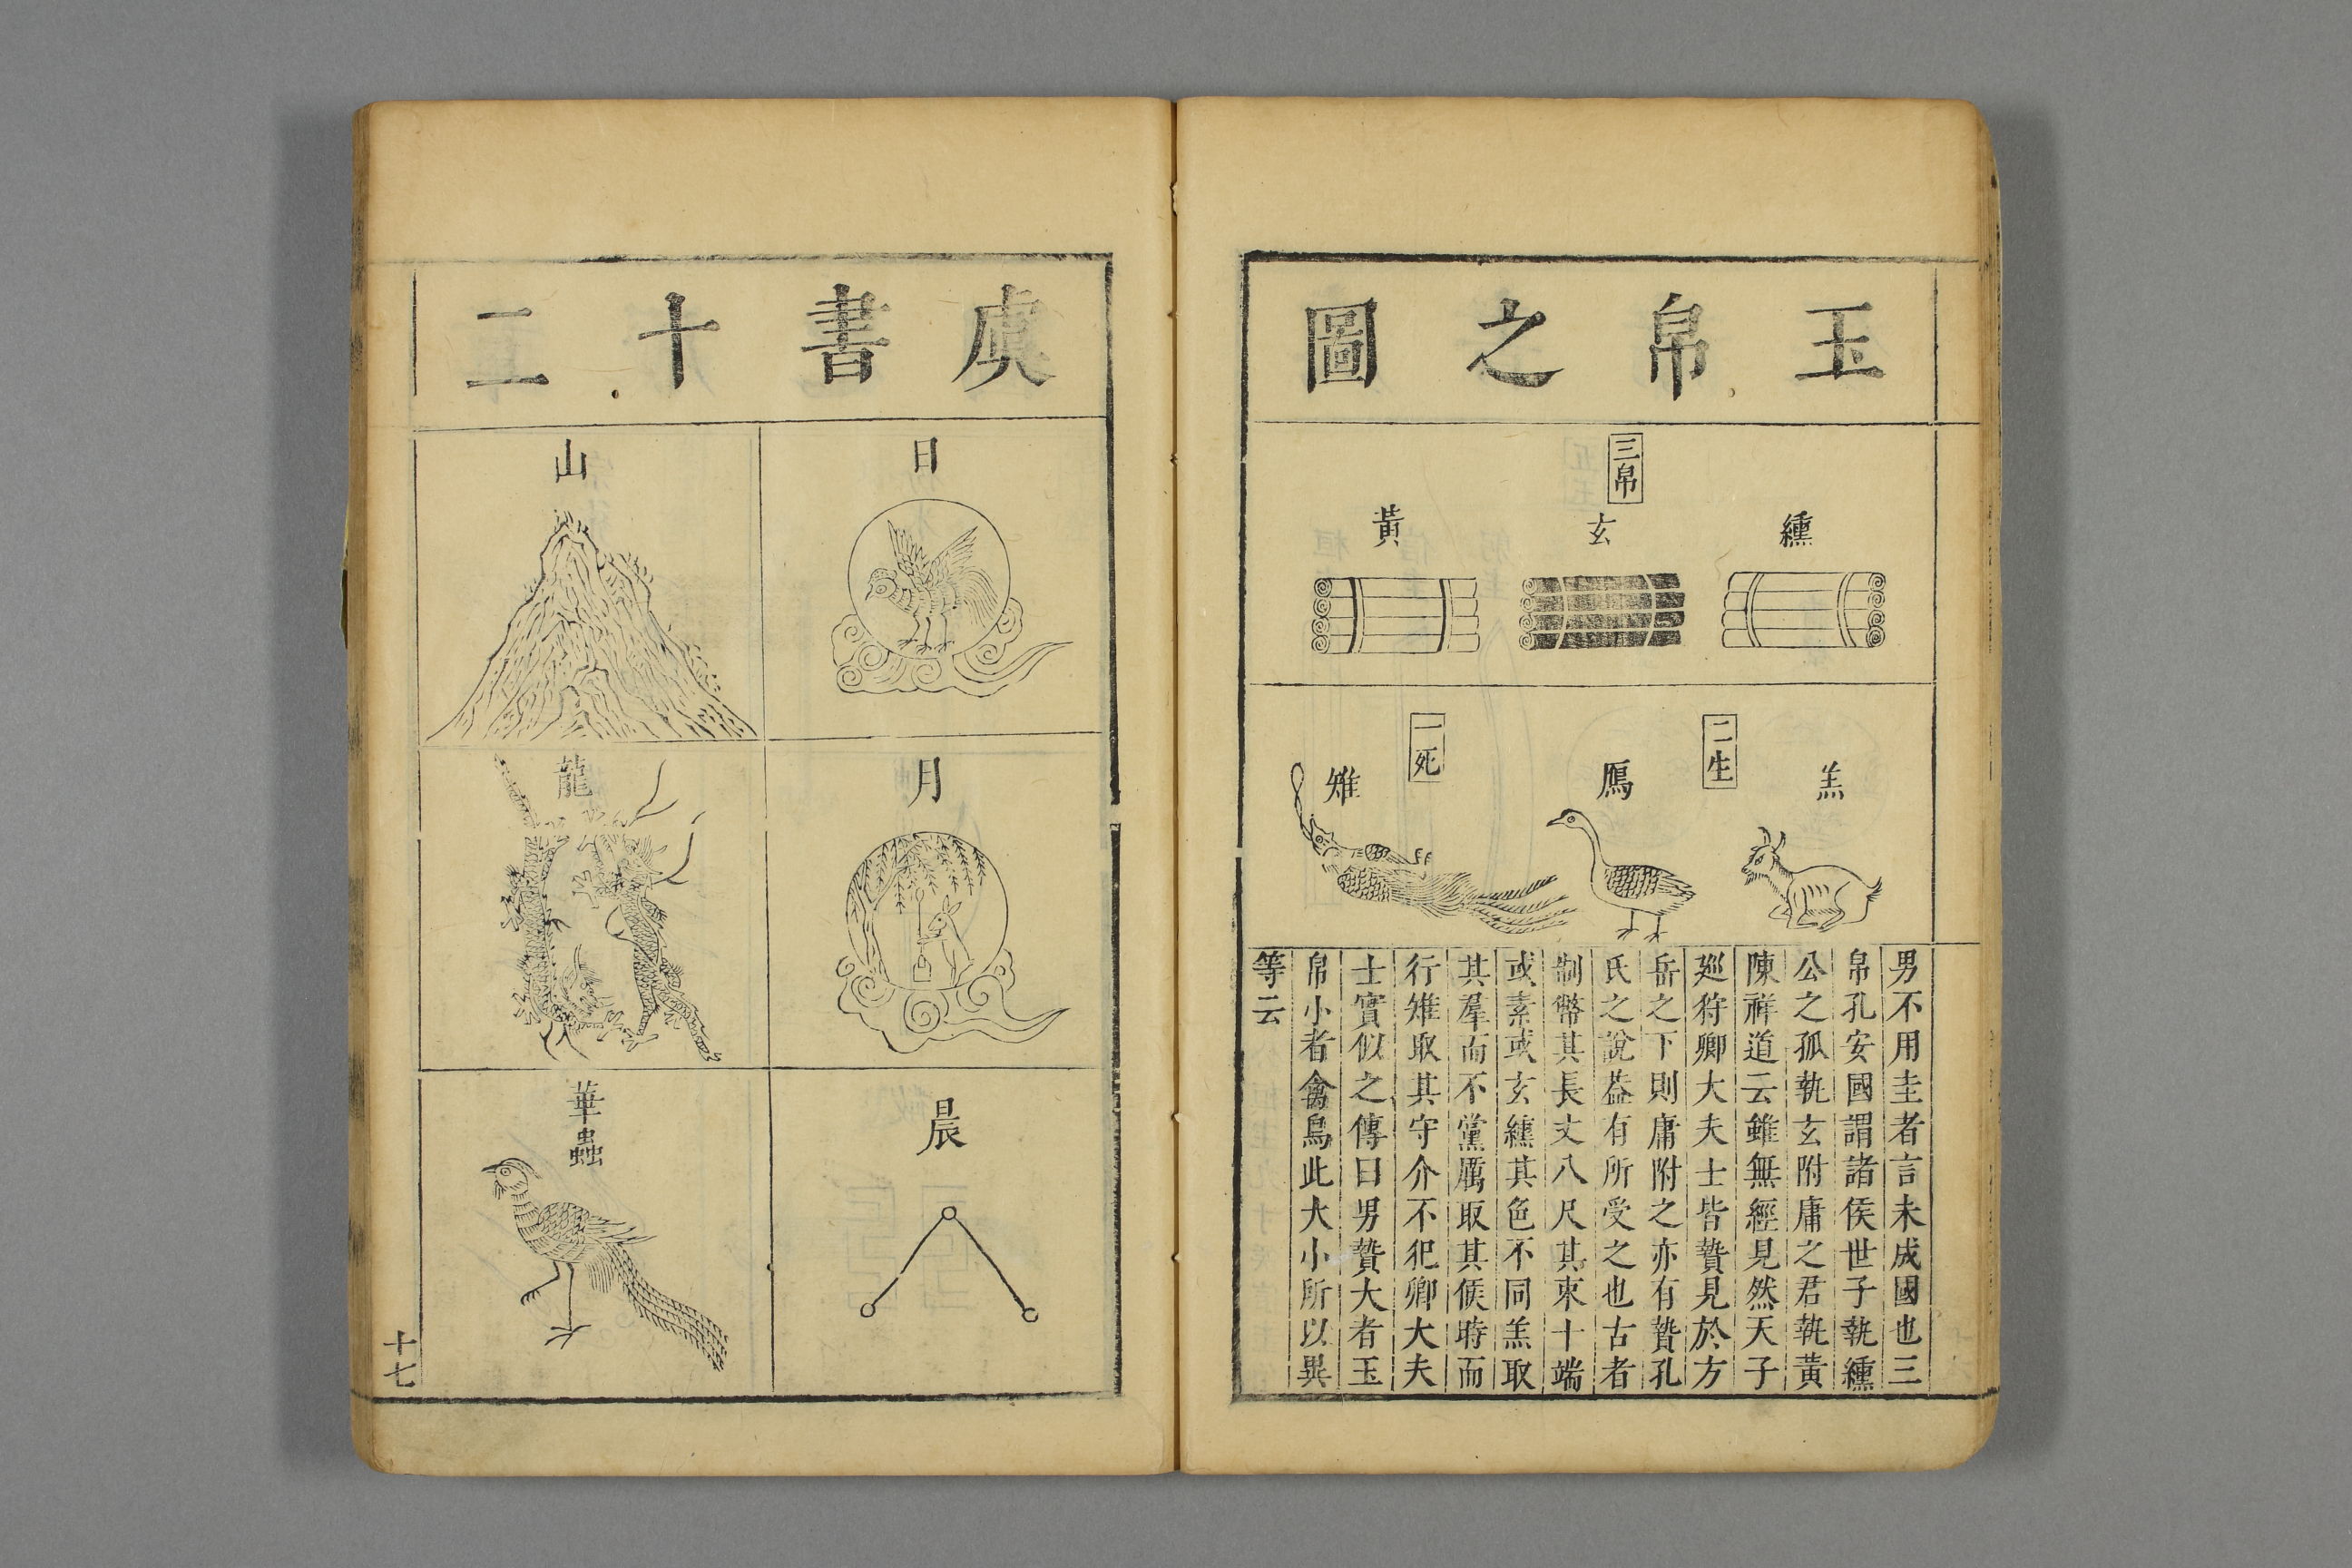 玉帛之圖
三帛
纁
玄
黃
二生
羔
鴈
一死
雉
男不用圭者言未成國也三
帛孔安國謂諸侯世子執纁
公之孤執玄附庸之君執黃
陳祥道云雖無經見然天子
廵狩卿大夫士皆贄見於方
岳之下則庸附之亦有贄孔
氏之說葢有所受之也古者
制幣其長丈八尺其束十端
或素或玄纁其色不同羔取
其羣而不黨鴈取其候時而
行雉取其守介不犯卿大夫
士實似之傳曰男贄大者玉
帛小者禽鳥此大小所以異
等云
虞書十二
日
月
晨
山
龍
華蟲
十七